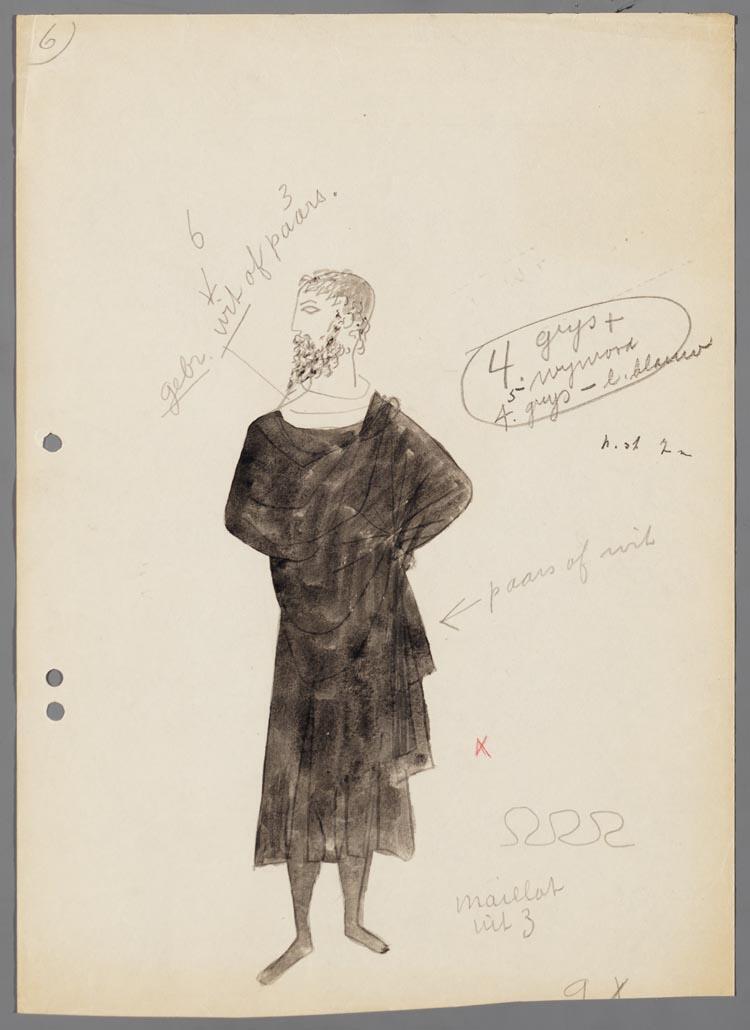 6
3
6
gebr. wit of paars.
4. grys +
5. wynrood
4. grys - l. blauw
paars of wit
maillot
uit 3
9 x